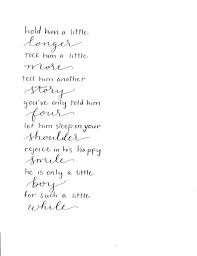 hold him a little
longer
rock him a little
more
tell him another
story
you've only told him
four
let him sleep on your
shoulder
rejoice in his happy
smile
he is only a little
boy
for such a little
while